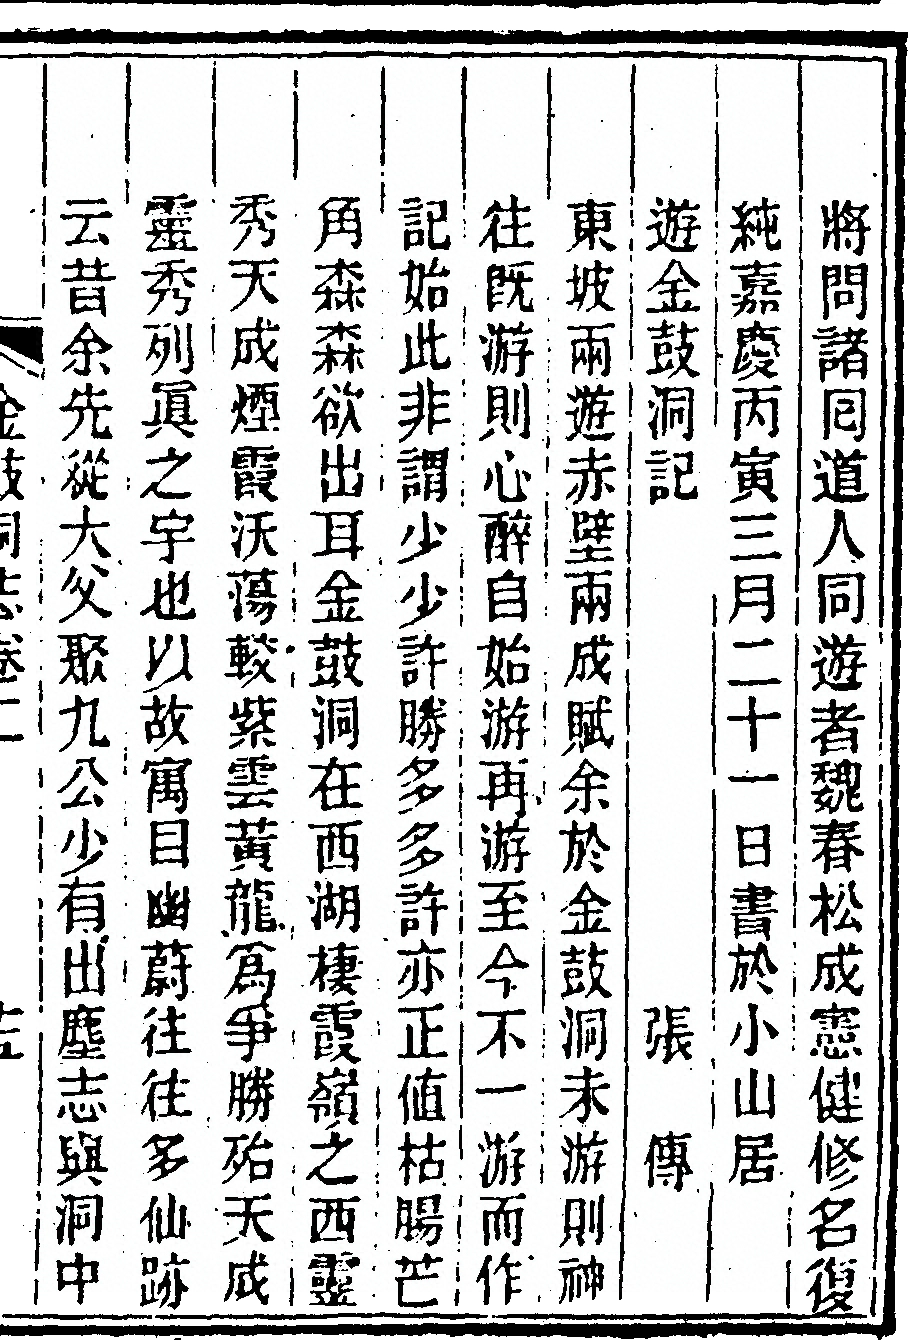 將問諸囘道人同遊者魏春松成憲健修名復
純嘉慶丙寅三月二十一日書於小山居
遊金鼓洞記 張 傳
東坡兩遊赤壁兩成賦余於金鼓洞未游則神
往既游則心醉自始游再游至今不一游而作
記始此非謂少少許勝多多許亦正値枯腸芒
角森森欲出耳金鼓洞在西湖棲霞嶺之西靈
秀天成煙霞沃蕩較紫雲黃龍爲爭勝殆天成
靈秀列眞之宇也以故寓目幽蔚往往多仙跡
云昔余先從大父聚九公少有出塵志與洞中
金鼓洞志卷二